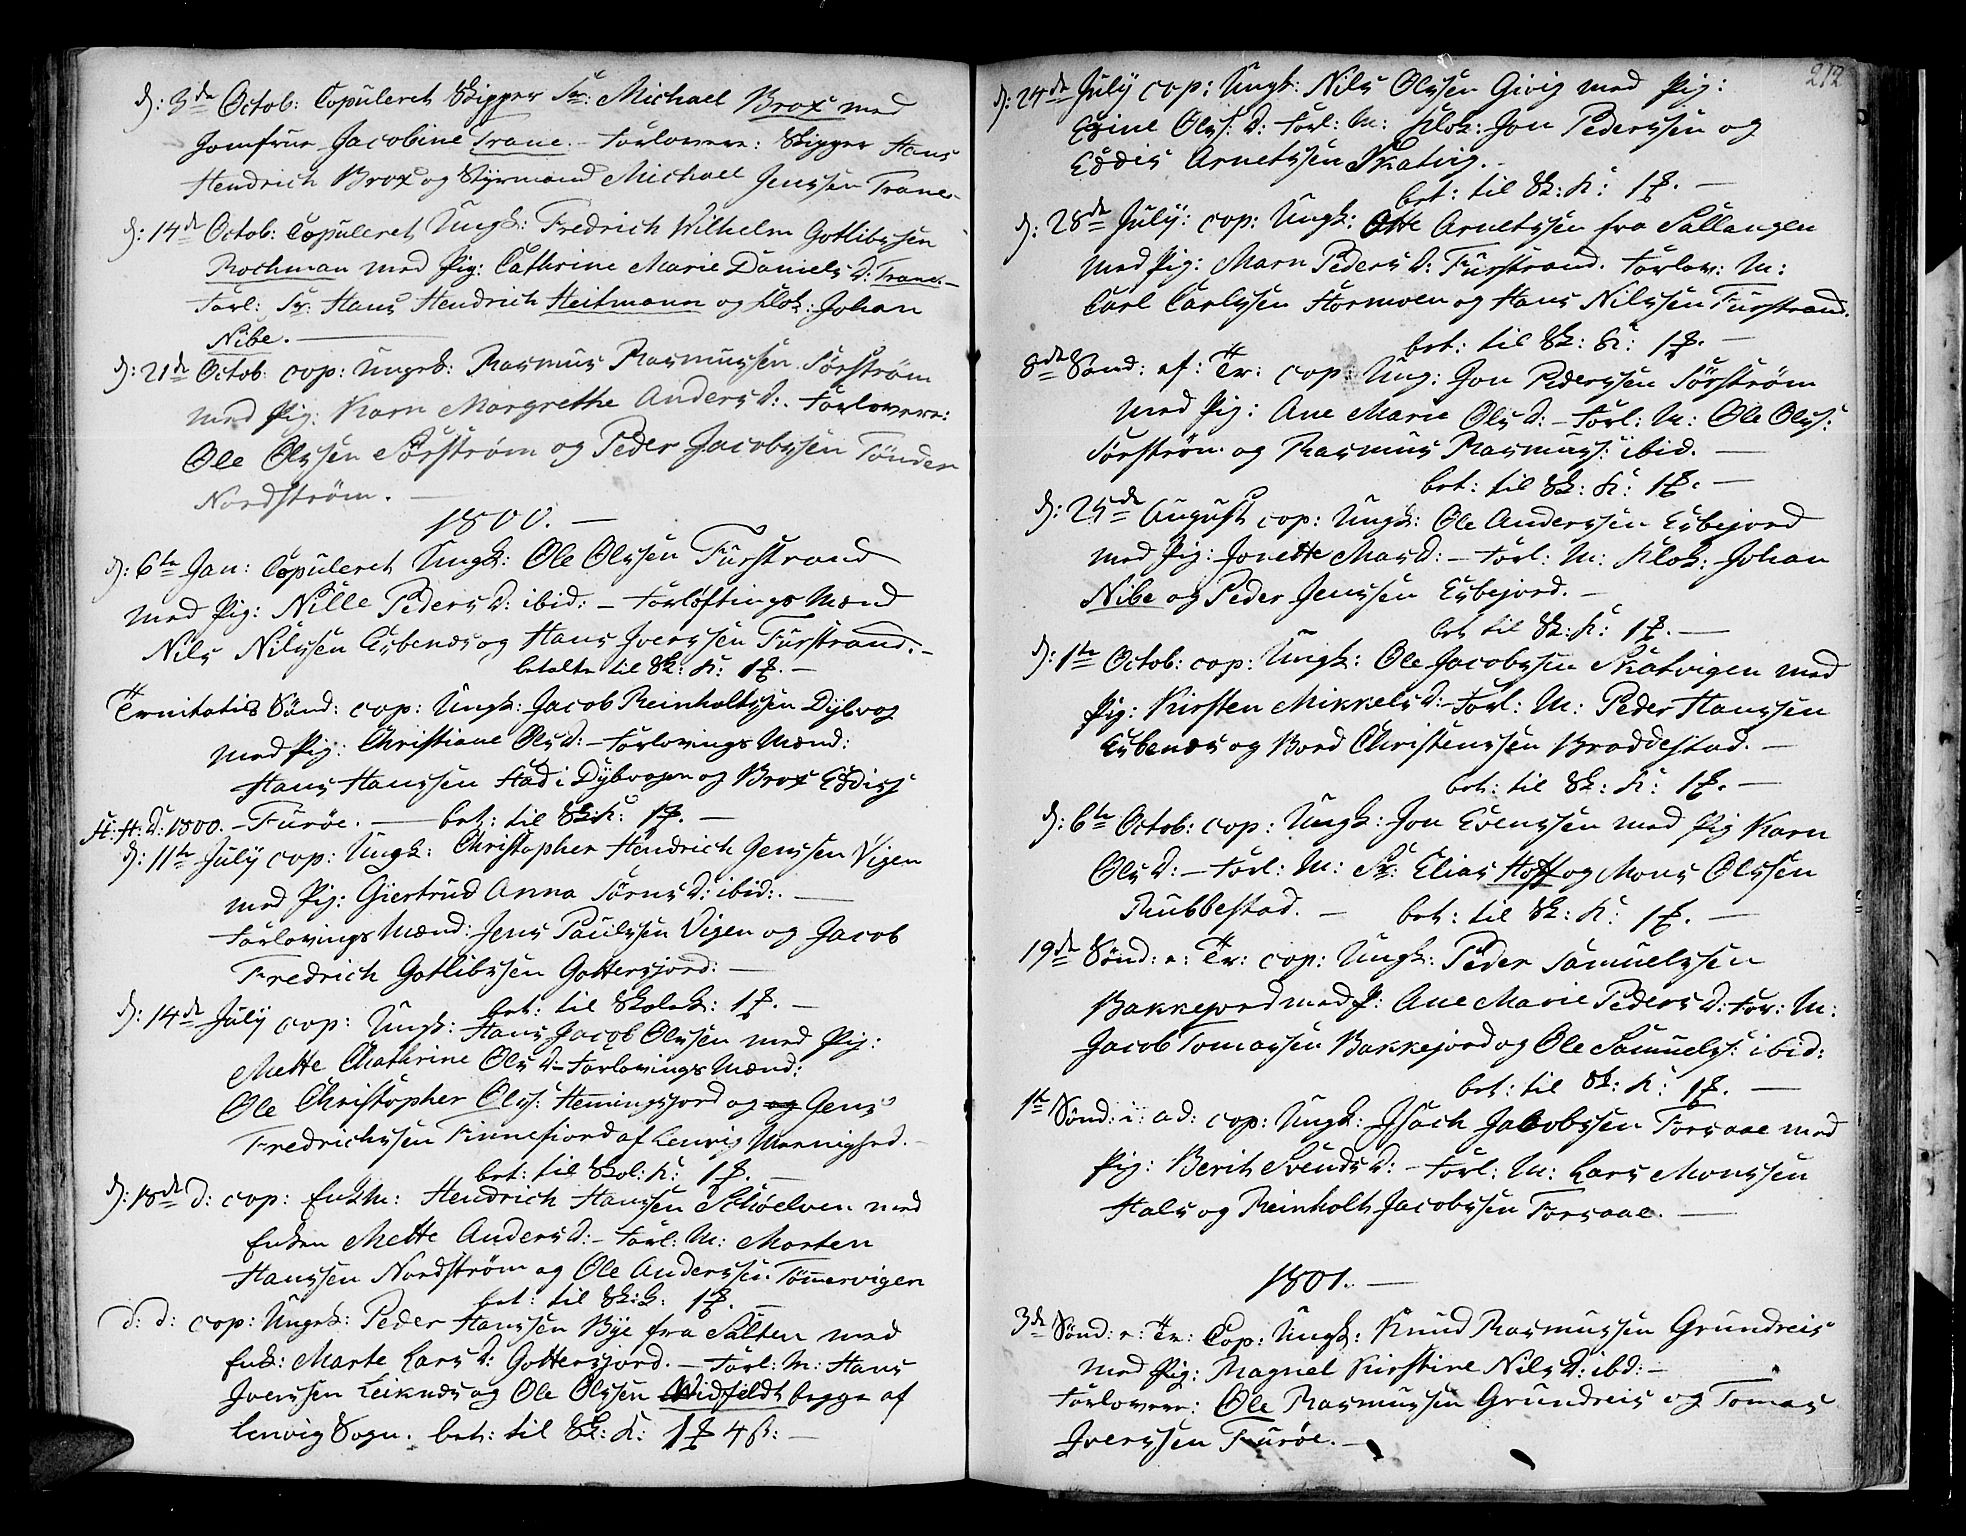 d: 3de Octob: Copuleret Skipper Sr: Michael Brox med
Jomfrue Jacobine Trane. - Forlovere: Skipper Hans
Hendrich Brox og Styrmand Michael Jenssen Trane.
d: 14de Octob: Copuleret Ungk: Fredrich Wilhelm Gotlibssen
Rochman med Pig: Cathrine Marie Daniels D: Trane. -
Forl: Sr: Hans Hendrich Heitmann og Klok: Johan
Nibe. -
d: 21de Octob: cop: Ungek: Rasmus Rasmussen Sörstrøm
med Pig: Karn Margrethe Anders D:. Forlovere:
Ole Olssen Sörstrøm og Peder Jacobssen Tönder
Nordstrøm. -
1800. -
d: 6te Jan: Copuleret Ungk: Ole Olssen Furstrand
med Pig: Nille Peders D: ibid: - Forløftings Mænd
Nils Nilssen Esbenæs og Hans Iverssen Furstrand. -
betalte til Sk: K: 1 #. -
Trinitatis Sönd: cop: Ungk: Jacob Reinholtssen Dybvog
med Pig: Christiane Ols D: - Forlovings Mænd:
Hans Hanssen Stad i Dybvogen og Brox Eddiss
H: H: D: 1800. - Furöe. - bet: til Sk: K: 1 #. -
d: 11te July cop: Ungk: Christopher Hendrich Jenssen Vigen
med Pig: Giertrud Anna Sörns D: ibid:. -
Forlovings Mænd: Jens Paulssen Vigen og Jacob
Fredrich Gotlibssen Gottersjord: -
bet: til Skolek: 1 #. -
d: 14de July cop: Ungk: Hans Jacob Olssen med Pig:
Mette Chathrine Ols D - Forlovings Mænd:
Ole Christopher Olss: Hemingsjord og og Jens
Fredrichssen Finnefiord af Lenvig Mænighed. -
bet: til Skol: K: 1 #. -
d: 18de d: cop: Enkm: Hendrich Hanssen Schöelven med
Enken Mette Anders D: - Forl: M: Morten
Hanssen Nordstrøm og Ole Anderssen Tömervigen
bet: til Sk: K: 1 #. -
d: d: cop: Ungek: Peder Hanssen Bye fra Salten med
Enk: Marte Lars D: Gottersjord. - Forl: M: Hans
Iverssen Leiknæs og Ole Olssen Widfeldt begge af
Lenvig Sogn. bet: til Sk: K: 1 # 4 ß: -
212
d: 24de July cop: Ungk: Nils Olssen Givig med Pig:
Ols: D: Forl: M: Klok: Jon Pederssen og
Eddis Arnetssen Skatvig. -
bet: til Sk: K: 1 #. -
d: 28de July: cop: Ungk: Otte Arnetssen fra Sallangen
med Pig: Marn Peders D: Furstrand. Forlov: M:
Carl Carlssen Stormoen og Hans Nilssen Furstrand.
bet: til Sk: K: 1 #. -
8de Sönd: ef: Tr: cop: Ung: Jon Pederssen Sörström
med Pig: Ane Marie Ols D: - Forl: M: Ole Olss:
Sörströn og Rasmus Rasmuss: ibid. -
bet: til Sk: K: 1 #. -
d: 25de August cop: Ungk: Ole Anderssen Esbejord
med Pig: Jonette Mas D: - Forl: M: Klok: Johan
Nibe og Peder Jenssen Esbejord. -
bet til Sk: K: 1 #. -
d: 1te Octob: cop: Ungk: Ole Jacobssen Skatvigen med
Pig: Kirsten Mikkels D: - Forl: M: Peder Hanssen
Esbenæs og Bord Christenssen Broddestad. -
bet: til Sk: K: 1 #. -
d: 6te Octob: cop: Ungk: Jon Evenssen med Pig Karn
Ols D: - Forl: M: Sr: Elias Hoff og Mons Olssen
Rubbestad. - bet: til Sk: K: 1 #. -
19de Sönd: e: Tr: cop: Ungk: Peder Samuelssen
Bakkejord med P: Ane Marie Peders D: For: M:
Jacob Tomassen Bakkejord og Ole Samuelss: ibid:
bet: til Sk: K: 1 #. -
1te Sönd: i: ad: cop: Ungk: Isach Jacobssen Forsaae med
Pig: Berit Svends D: - Forl: M: Lars Monssen
Hals og Reinholt Jacobssen Forsaae. -
1801. -
3de Sönd: e: Tr: Cop: Ungk: Knud Rasmussen Grundreis
med Pig: Magnel Kirstine Nils D: ibd: -
Forlovere: Ole Rasmussen Grundreis og Tomas
Iverssen Furöe. -